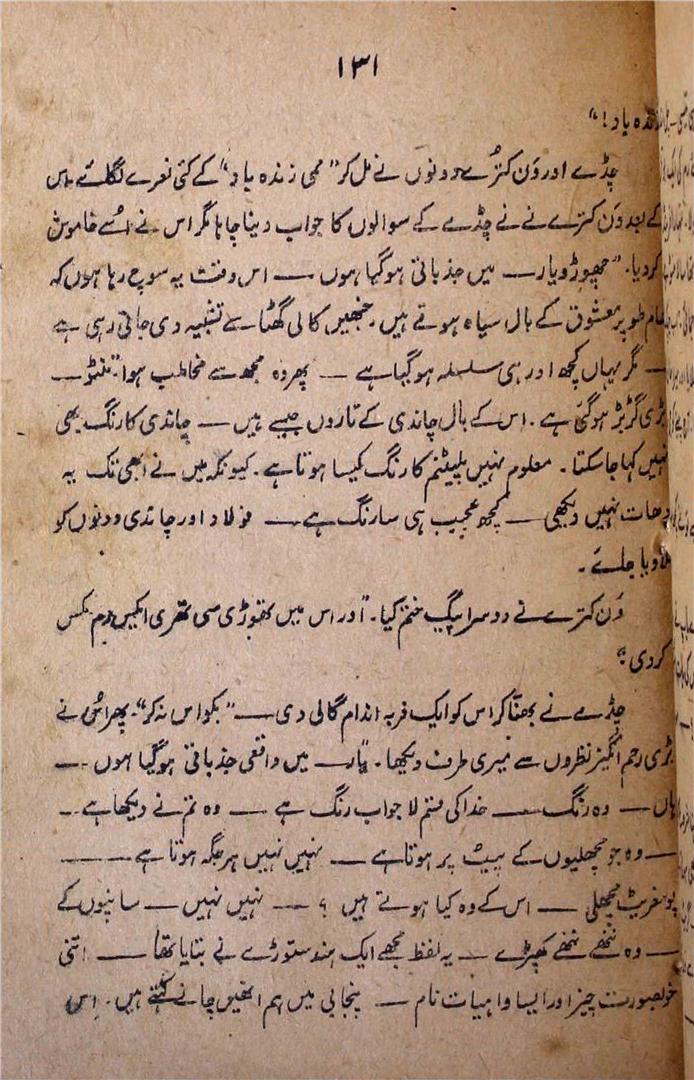 ۱۳۱
زندہ باد!"
چڈے اور وَن کترُے دونوں نے مل کر "ممی زندہ باد" کے کئی نعرے لگائے اس
کے بعد وَن کترے نے نے چڈے کے سوالوں کا جواب دینا چاہا مگر اس نے اُسے خاموش
کردیا۔ "چھوڑو یار ـــ میں جذباتی ہوگیا ہوں ـــ اس وقت یہ سوچ رہا ہوں کہ
عام طور پر معشوق کے بال سیاہ ہوتے ہیں۔ جنھیں کالی گھٹا سے تشبیہ دی جاتی رہی ہے
ـــ مگر یہاں کچھ اور ہی سلسلہ ہوگیا ہے ـــ پھر وہ مجھ سے مخاطب ہوا "منٹو ـــ
بڑی گڑبڑ ہوگئی ہے۔ اس کے بال چاندی کے تاروں جیسے ہیں ـــ چاندی کا رنگ بھی
نہیں کہا جاسکتا۔ معلوم نہیں پلیٹنم کا رنگ کیسا ہوتا ہے۔ کیونکہ میں نے ابھی تک یہ
دھات نہیں دیکھی ـــ کچھ عجیب ہی سا رنگ ہے ـــ فولاد اور چاندی دونوں کو
ملا دیا جائے۔
وَن کترے نے دوسرا پیگ ختم کیا۔ "اور اس میں تھوڑی سی تھری ایکس رم مکس
کردی؟
چڈے نے بھنّا کر اس کو ایک فربہ اندام گالی دی ـــ "بکواس نہ کر"۔ پھر اُس نے
بڑی رحم انگیز نظروں سے میری طرف دیکھا۔ "یار ـــ میں واقعی جذباتی ہوگیا ہوں ـــ
ہاں ـــ وہ رنگ ـــ خدا کی قسم لاجواب رنگ ہے ـــ وہ تم نے دیکھا ہے ـــ
ـــ وہ جو مچھلیوں کے پیٹ پر ہوتا ہے ـــ نہیں نہیں ہر جگہ ہوتا ہے ـــ
پومفریٹ مچھلی ـــ اس کے وہ کیا ہوتے ہیں ؟ ـــ نہیں نہیں ـــ سانپوں کے
ـــ وہ ننھے ننھے کھپرے ـــ یہ لفظ مجھے ایک ہندستوڑے نے بتایا تھا ـــ اتنی
خوبصورت چیز اور ایسا واہیات نام ـــ پنجابی میں ہم انھیں چانے کہتے ہیں۔ اس